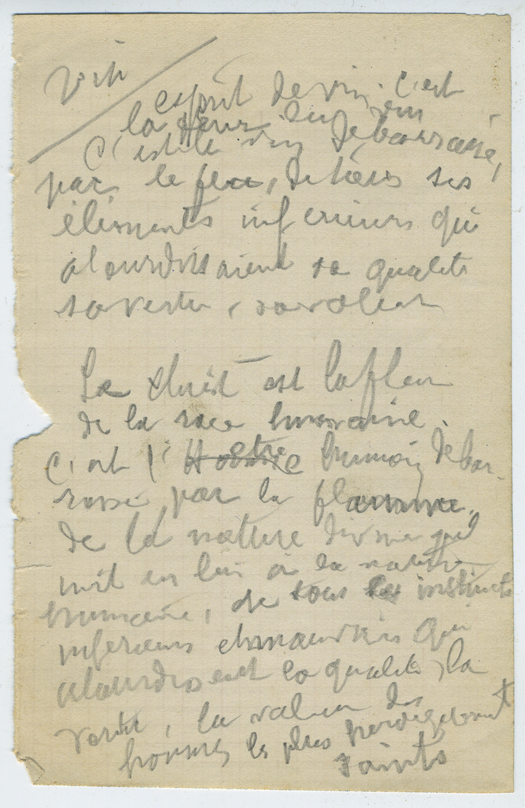 esprit de vin, c'est
la fleur du vin
C'est le vin débarrassé,
par le feu, de tous ses
éléments inférieurs qui
alourdissaient sa qualité
sa vertu, sa valeur
Le Christ est la fleur
de la race humaine.
C'est l' humain débar
rassé par la flamme
de la nature divine qu'il
unit en lui à la nature
humaine, de tous les instincts
inférieurs et mauvais qui
alourdissent la qualité, la
vertu, la valeur des
hommes les plus
saints